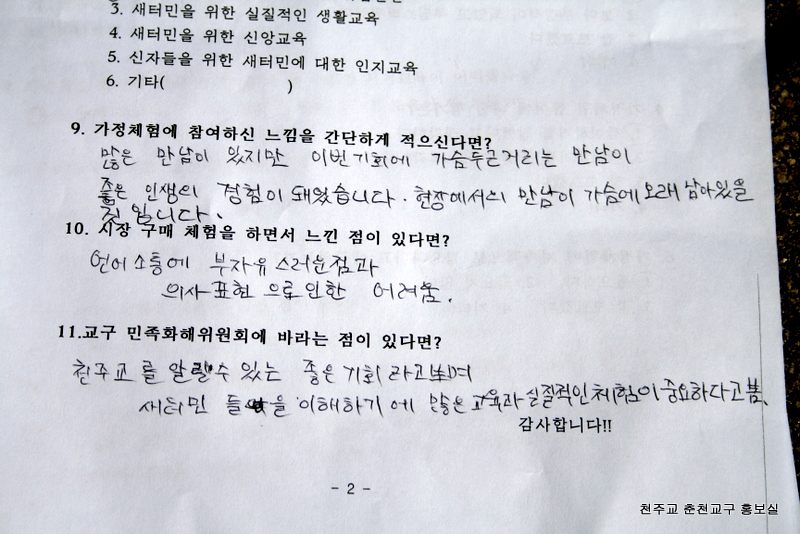 3. 새터민을 위한 실질적인 생활교육
4. 새터민을 위한 신앙교육
5. 신자들을 위한 새터민에 대한 인지교육
6. 기타( )
9. 가정체험에 참여하신 느낌을 간단하게 적으신다면?
많은 만남이 있지만 이번기회에 가슴두근거리는 만남이
좋은 인생의 경험이 돼었습니다. 현장에서의 만남이 가슴에 오래 남아있을
것 입니다.
10. 시장 구매 체험을 하면서 느낀 점이 있다면?
언어 소통에 부자유스러운점과
의사 표현 으로 인한 어려움.
11.교구 민족화해위원회에 바라는 점이 있다면?
천주교를 알릴수 있는 좋은기회 라고 보며
새터민 들을 이해하기 에 많은 교육과 실질적인 체험이 중요하다고 봄.
감사합니다!!
- 2 -
천주교 춘천교구 홍보실